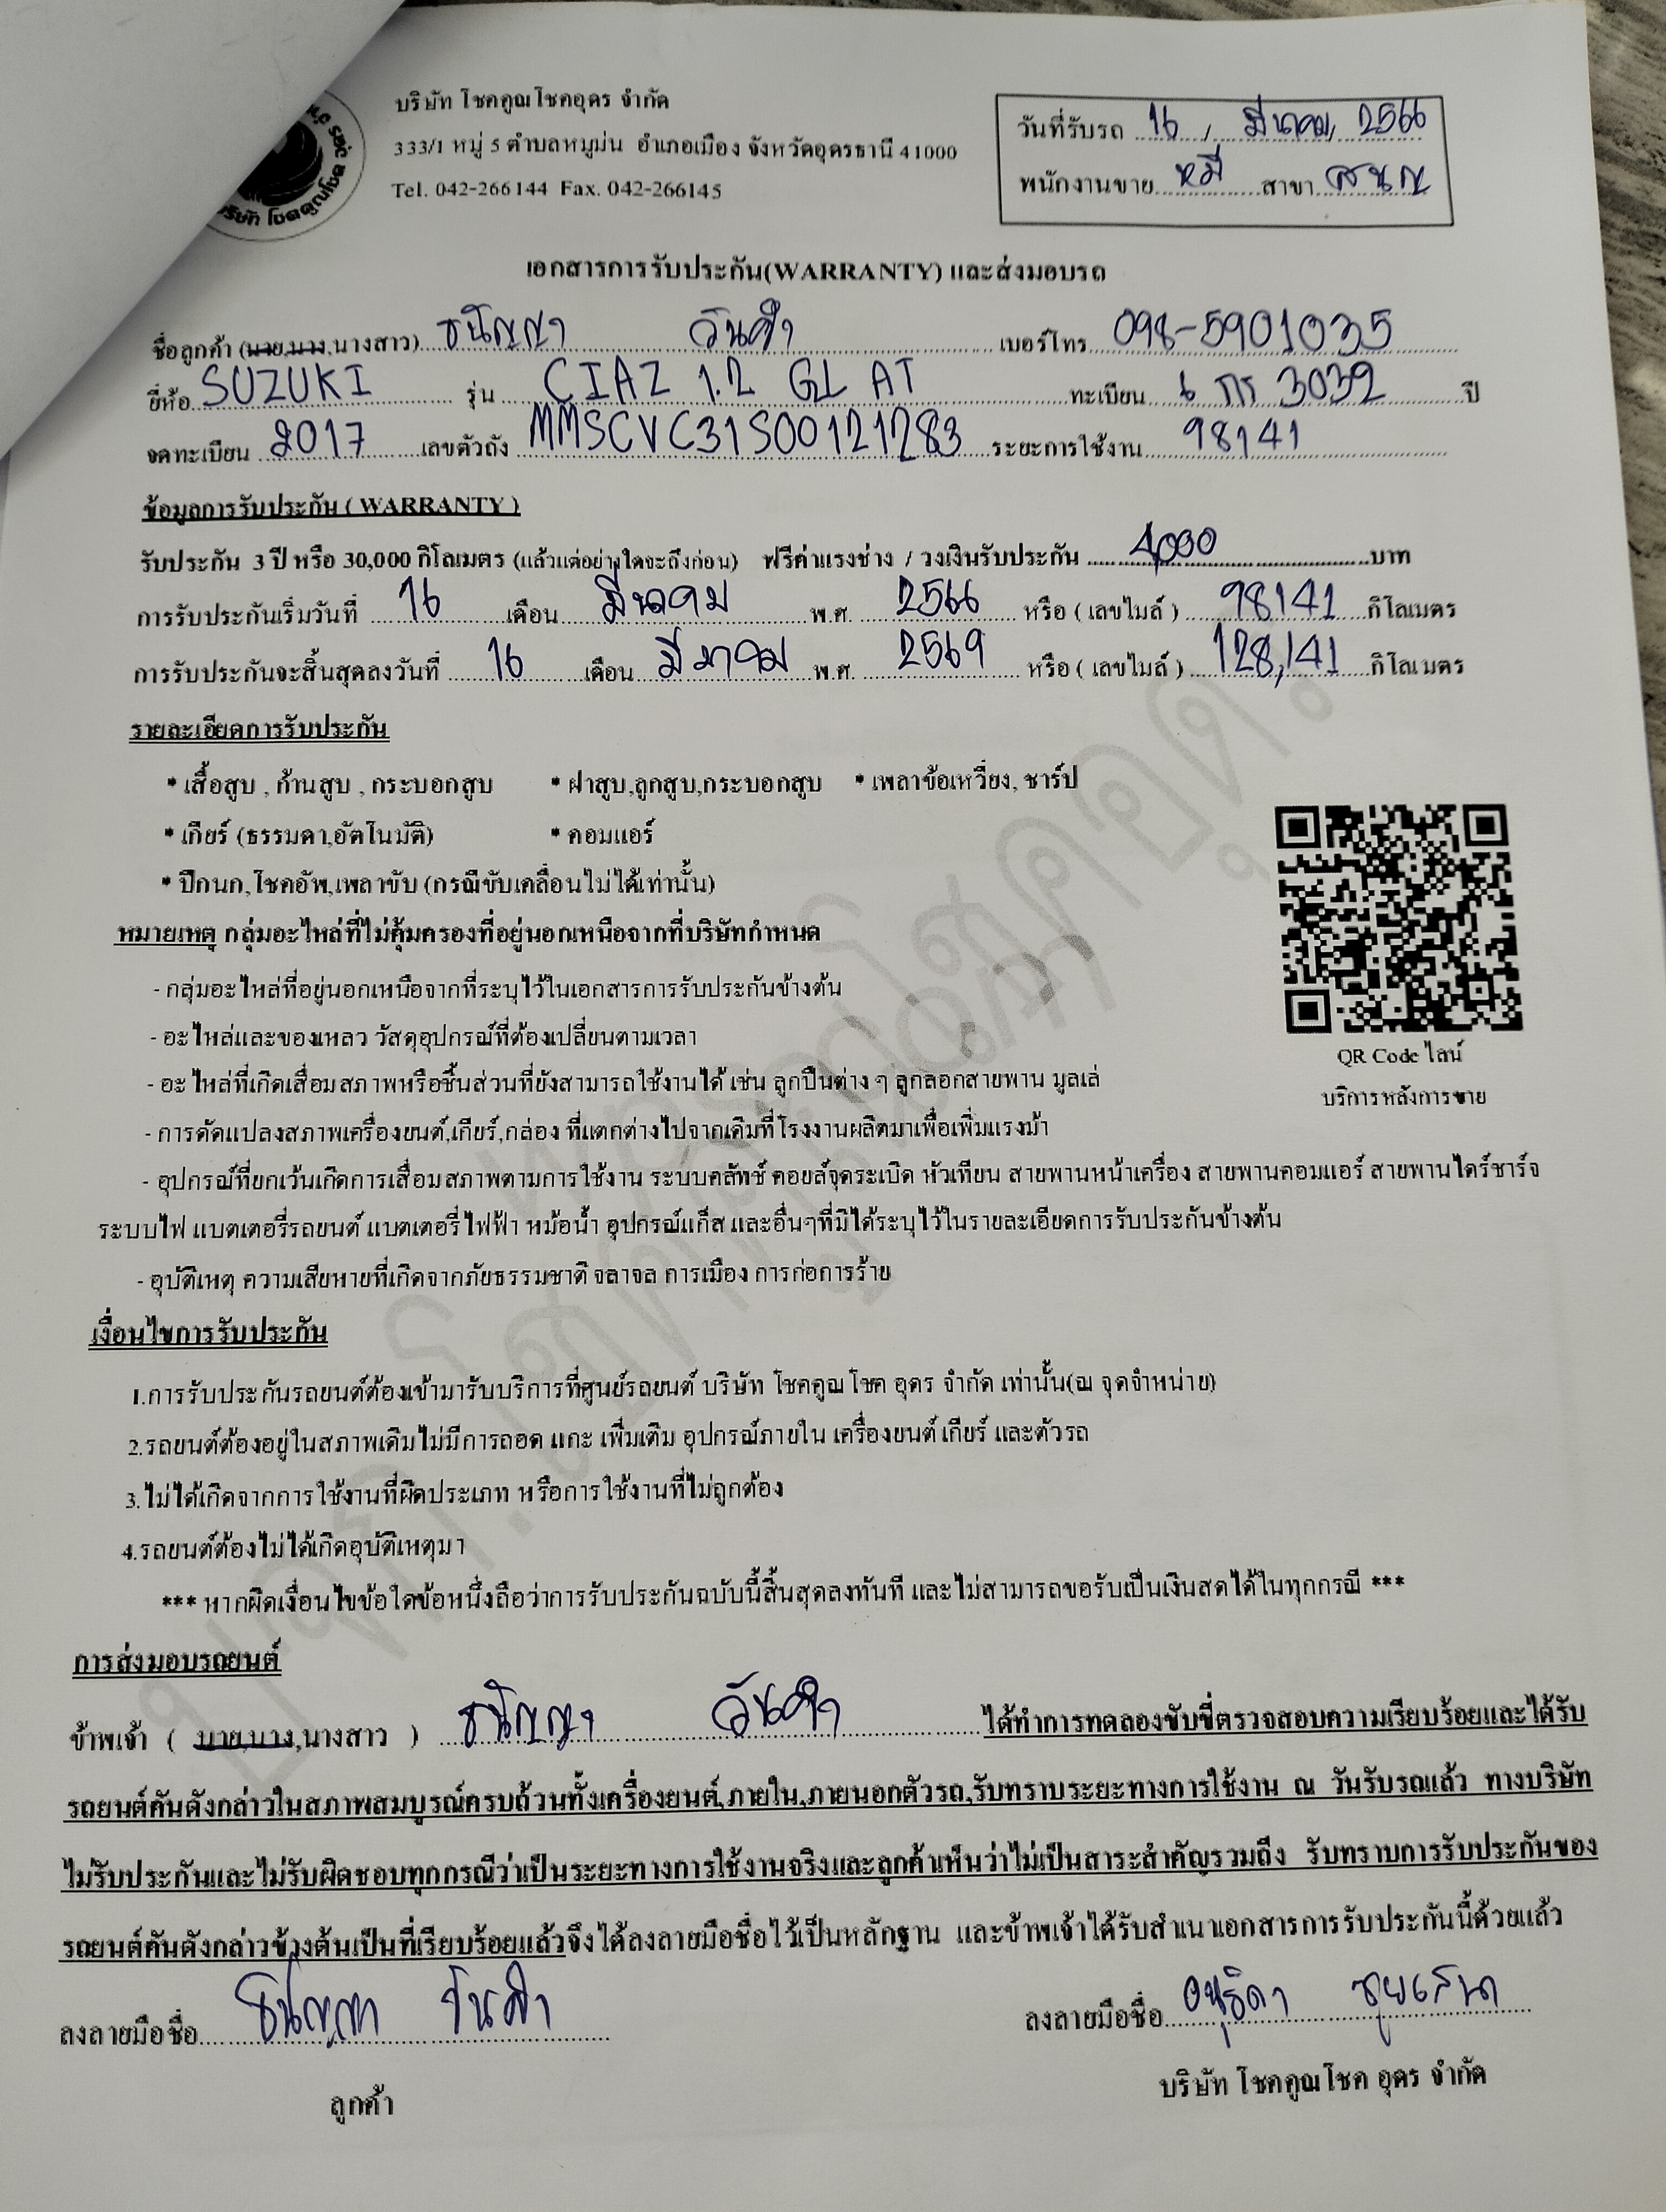 บริษัท โชคคูณโชคอุดร จำกัด
333/1 หมู่ 5 ตำบลหมูม่น อำเภอเมือง จังหวัดอุดรธานี 41000
Tel. 042-266144 Fax. 042-266145
วันที่รับรถ 16 / มีนาคม / 2566
พนักงานขาย หมี สาขา
เอกสารการรับประกัน(WARRANTY) และส่งมอบรถ
ชื่อลูกค้า (นาย,นาง,นางสาว) ธนัญญา วันคำ เบอร์โทร 098-5901035
ยี่ห้อ SUZUKI รุ่น CIAZ 1.2 GL AT ทะเบียน 6 กก 3032 ปี
จดทะเบียน 2017 เลขตัวถัง MMSCVC31S00121283 ระยะการใช้งาน 98141
ข้อมูลการรับประกัน ( WARRANTY )
รับประกัน 3 ปี หรือ 30,000 กิโลเมตร (แล้วแต่อย่างใดจะถึงก่อน) ฟรีค่าแรงช่าง / วงเงินรับประกัน 4,000 บาท
การรับประกันเริ่มวันที่ 16 เดือน มีนาคม พ.ศ. 2566 หรือ ( เลขไมล์ ) 98141 กิโลเมตร
การรับประกันจะสิ้นสุดลงวันที่ 16 เดือน มีนาคม พ.ศ. 2569 หรือ ( เลขไมล์ ) 128,141 กิโลเมตร
รายละเอียดการรับประกัน
* เสื้อสูบ , ก้านสูบ , กระบอกสูบ * ฝาสูบ,ลูกสูบ,กระบอกสูบ * เพลาข้อเหวี่ยง, ชาร์ป
* เกียร์ (ธรรมดา,อัตโนมัติ) * คอมแอร์
* ปีกนก,โชคอัพ,เพลาขับ (กรณีขับเคลื่อนไม่ได้เท่านั้น)
หมายเหตุ กลุ่มอะไหล่ที่ไม่คุ้มครองที่อยู่นอกเหนือจากที่บริษัทกำหนด
- กลุ่มอะไหล่ที่อยู่นอกเหนือจากที่ระบุไว้ในเอกสารการรับประกันข้างต้น
- อะไหล่และของเหลว วัสดุอุปกรณ์ที่ต้องเปลี่ยนตามเวลา
- อะไหล่ที่เกิดเสื่อมสภาพหรือชิ้นส่วนที่ยังสามารถใช้งานได้ เช่น ลูกปืนต่าง ๆ ลูกลอกสายพาน มูลเล่
- การดัดแปลงสภาพเครื่องยนต์,เกียร์,กล่อง ที่แตกต่างไปจากเดิมที่โรงงานผลิตมาเพื่อเพิ่มแรงม้า
- อุปกรณ์ที่ยกเว้นเกิดการเสื่อมสภาพตามการใช้งาน ระบบคลัทช์ คอยล์จุดระเบิด หัวเทียน สายพานหน้าเครื่อง สายพานคอมแอร์ สายพานไดร์ชาร์จ
ระบบไฟ แบตเตอรี่รถยนต์ แบตเตอรี่ไฟฟ้า หม้อน้ำ อุปกรณ์แก็ส และอื่นๆที่มิได้ระบุไว้ในรายละเอียดการรับประกันข้างต้น
- อุบัติเหตุ ความเสียหายที่เกิดจากภัยธรรมชาติ จลาจล การเมือง การก่อการร้าย
QR Code ไลน์
บริการหลังการขาย
เงื่อนไขการรับประกัน
1.การรับประกันรถยนต์ต้องเข้ามารับบริการที่ศูนย์รถยนต์ บริษัท โชคคูณ โชค อุดร จำกัด เท่านั้น(ณ จุดจำหน่าย)
2.รถยนต์ต้องอยู่ในสภาพเดิมไม่มีการถอด แกะ เพิ่มเติม อุปกรณ์ภายใน เครื่องยนต์ เกียร์ และตัวรถ
3.ไม่ได้เกิดจากการใช้งานที่ผิดประเภท หรือการใช้งานที่ไม่ถูกต้อง
4.รถยนต์ต้องไม่ได้เกิดอุบัติเหตุมา
*** หากผิดเงื่อนไขข้อใดข้อหนึ่งถือว่าการรับประกันฉบับนี้สิ้นสุดลงทันที และไม่สามารถขอรับเป็นเงินสดได้ในทุกกรณี ***
การส่งมอบรถยนต์
ข้าพเจ้า ( นาย,นาง,นางสาว ) ธนัญญา วันคำ ได้ทำการทดลองขับขี่ตรวจสอบความเรียบร้อยและได้รับ
รถยนต์คันดังกล่าวในสภาพสมบูรณ์ครบถ้วนทั้งเครื่องยนต์,ภายใน,ภายนอกตัวรถ,รับทราบระยะทางการใช้งาน ณ วันรับรถแล้ว ทางบริษัท
ไม่รับประกันและไม่รับผิดชอบทุกกรณีว่าเป็นระยะทางการใช้งานจริงและลูกค้าเห็นว่าไม่เป็นสาระสำคัญรวมถึง รับทราบการรับประกันของ
รถยนต์คันดังกล่าวข้างต้นเป็นที่เรียบร้อยแล้วจึงได้ลงลายมือชื่อไว้เป็นหลักฐาน และข้าพเจ้าได้รับสำเนาเอกสารการรับประกันนี้ด้วยแล้ว
ลงลายมือชื่อ ธนัญญา วันคำ ลงลายมือชื่อ
ลูกค้า บริษัท โชคคูณโชค อุดร จำกัด